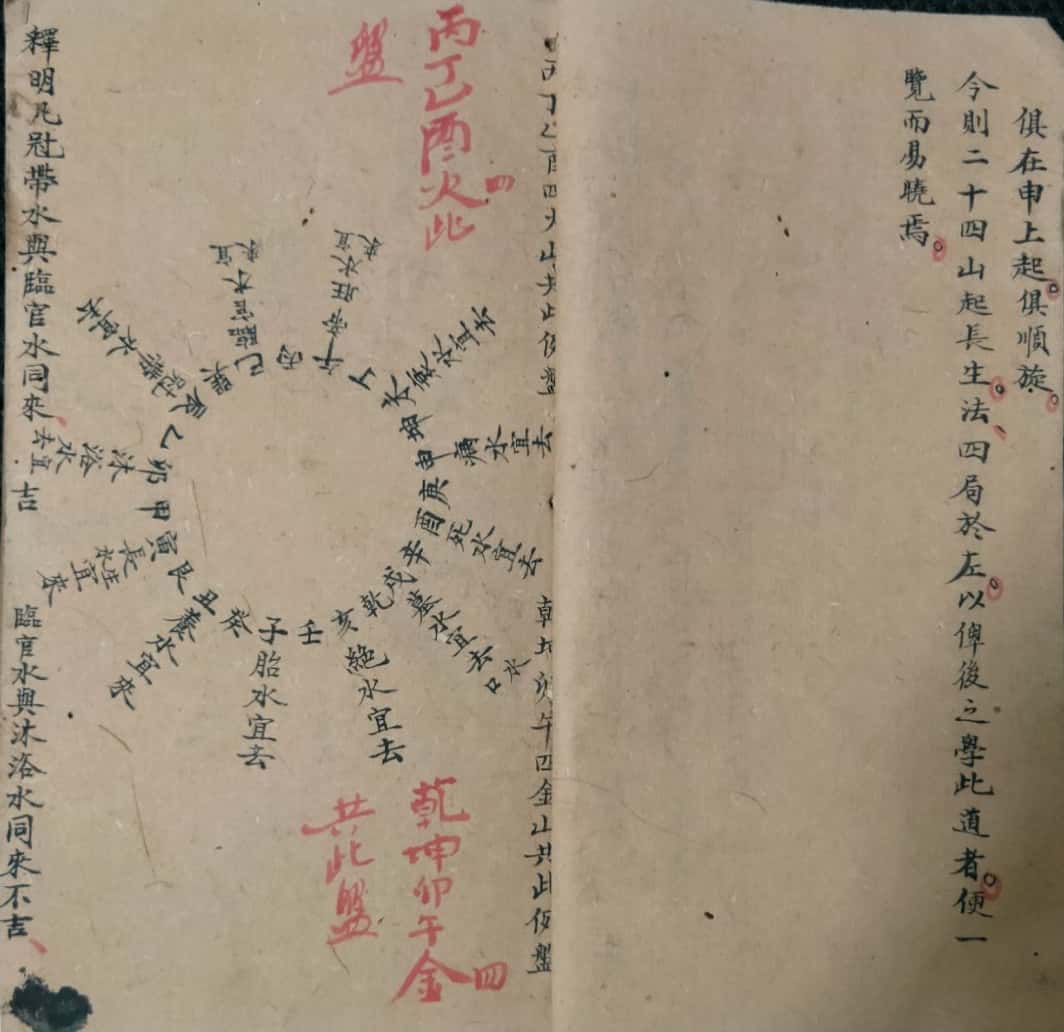 俱在申上起俱順旋
今則二十四山起長生法四局於左以俾後之學此道者便一
覽而易曉焉
丙丁乙酉四火山共此仮盤
乾坤卯午四金山共此仮盤
丙丁乙酉四火此
盤
乾坤卯午四金
共此盤
丙
午帝旺水宜來
丁
未衰水宜去
坤
申病水宜去
庚
酉死水宜去
辛
戌墓水宜去
水口
乾
亥絕水宜去
壬
子胎水宜去
癸
丑養水宜來
艮
寅長生水宜來
甲
卯沐浴水宜去
乙
辰冠帶水宜來
巽
巳臨官水宜來
釋明凡冠帶水與臨官水同來吉
臨官水與沐浴水同來不吉